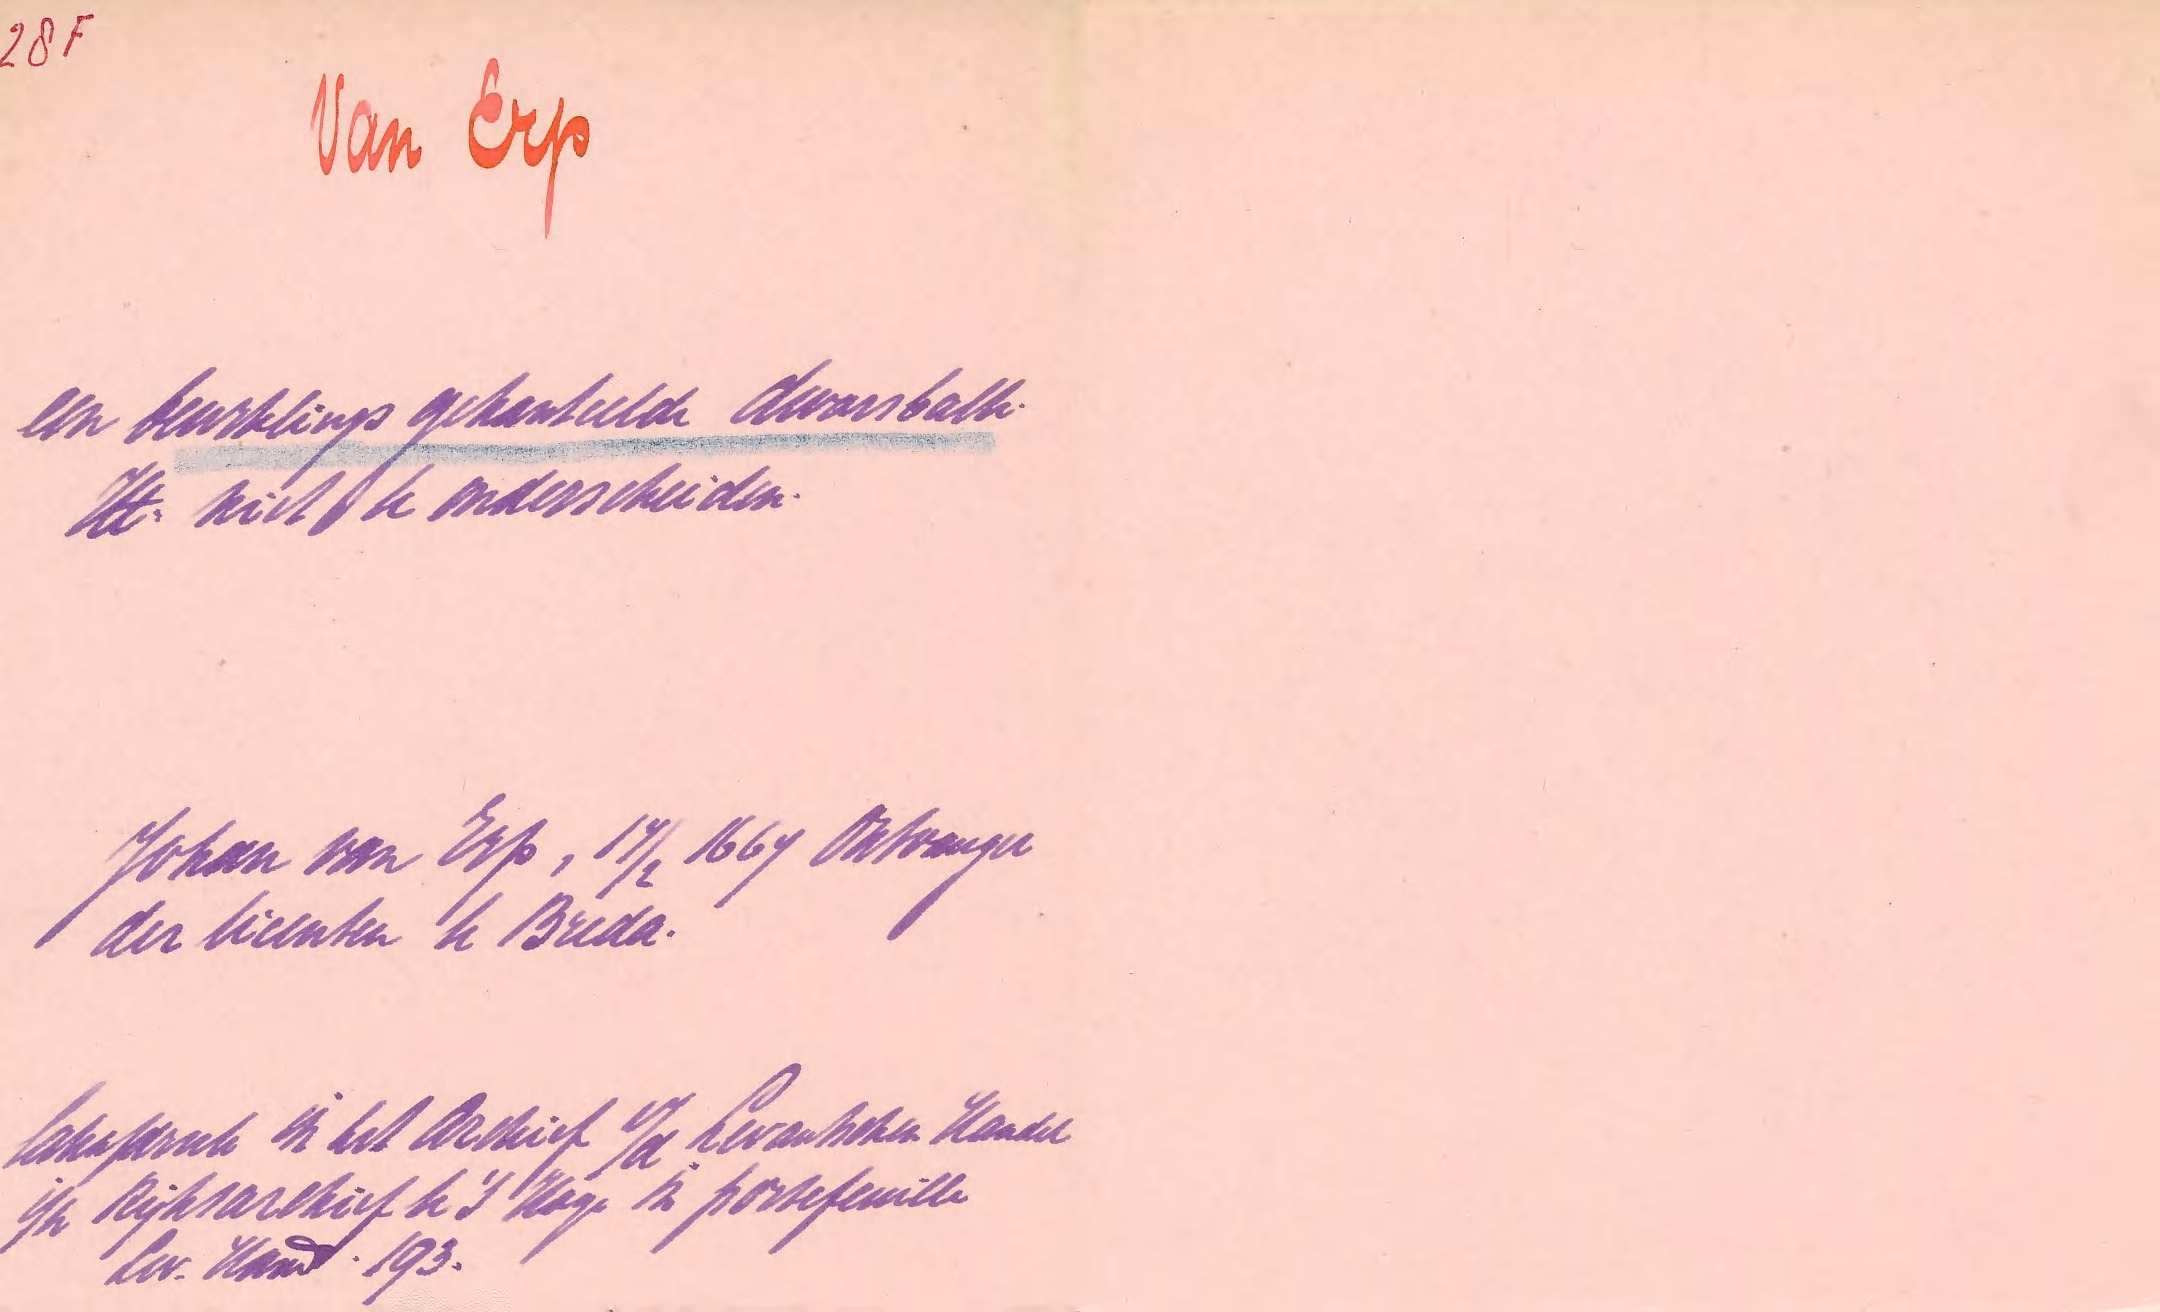 28 F
Van Erp
een beurtelings gekanteelde dwarsbalk.
Ht. niet te onderscheiden.
Johan van Erp, 17/2 1667 Ontvanger
der licenten te Breda.
Lakafdruk in het Archief v/d Levantschen Handel
i/h Rijksarchief te 's Hage in portefeuille
Lev. Hand. 193.